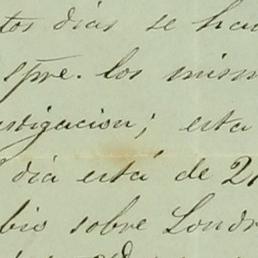 tos dias se ha
spre. los mism
vestigacion; esta
dia está de 2
bio sobre Londr